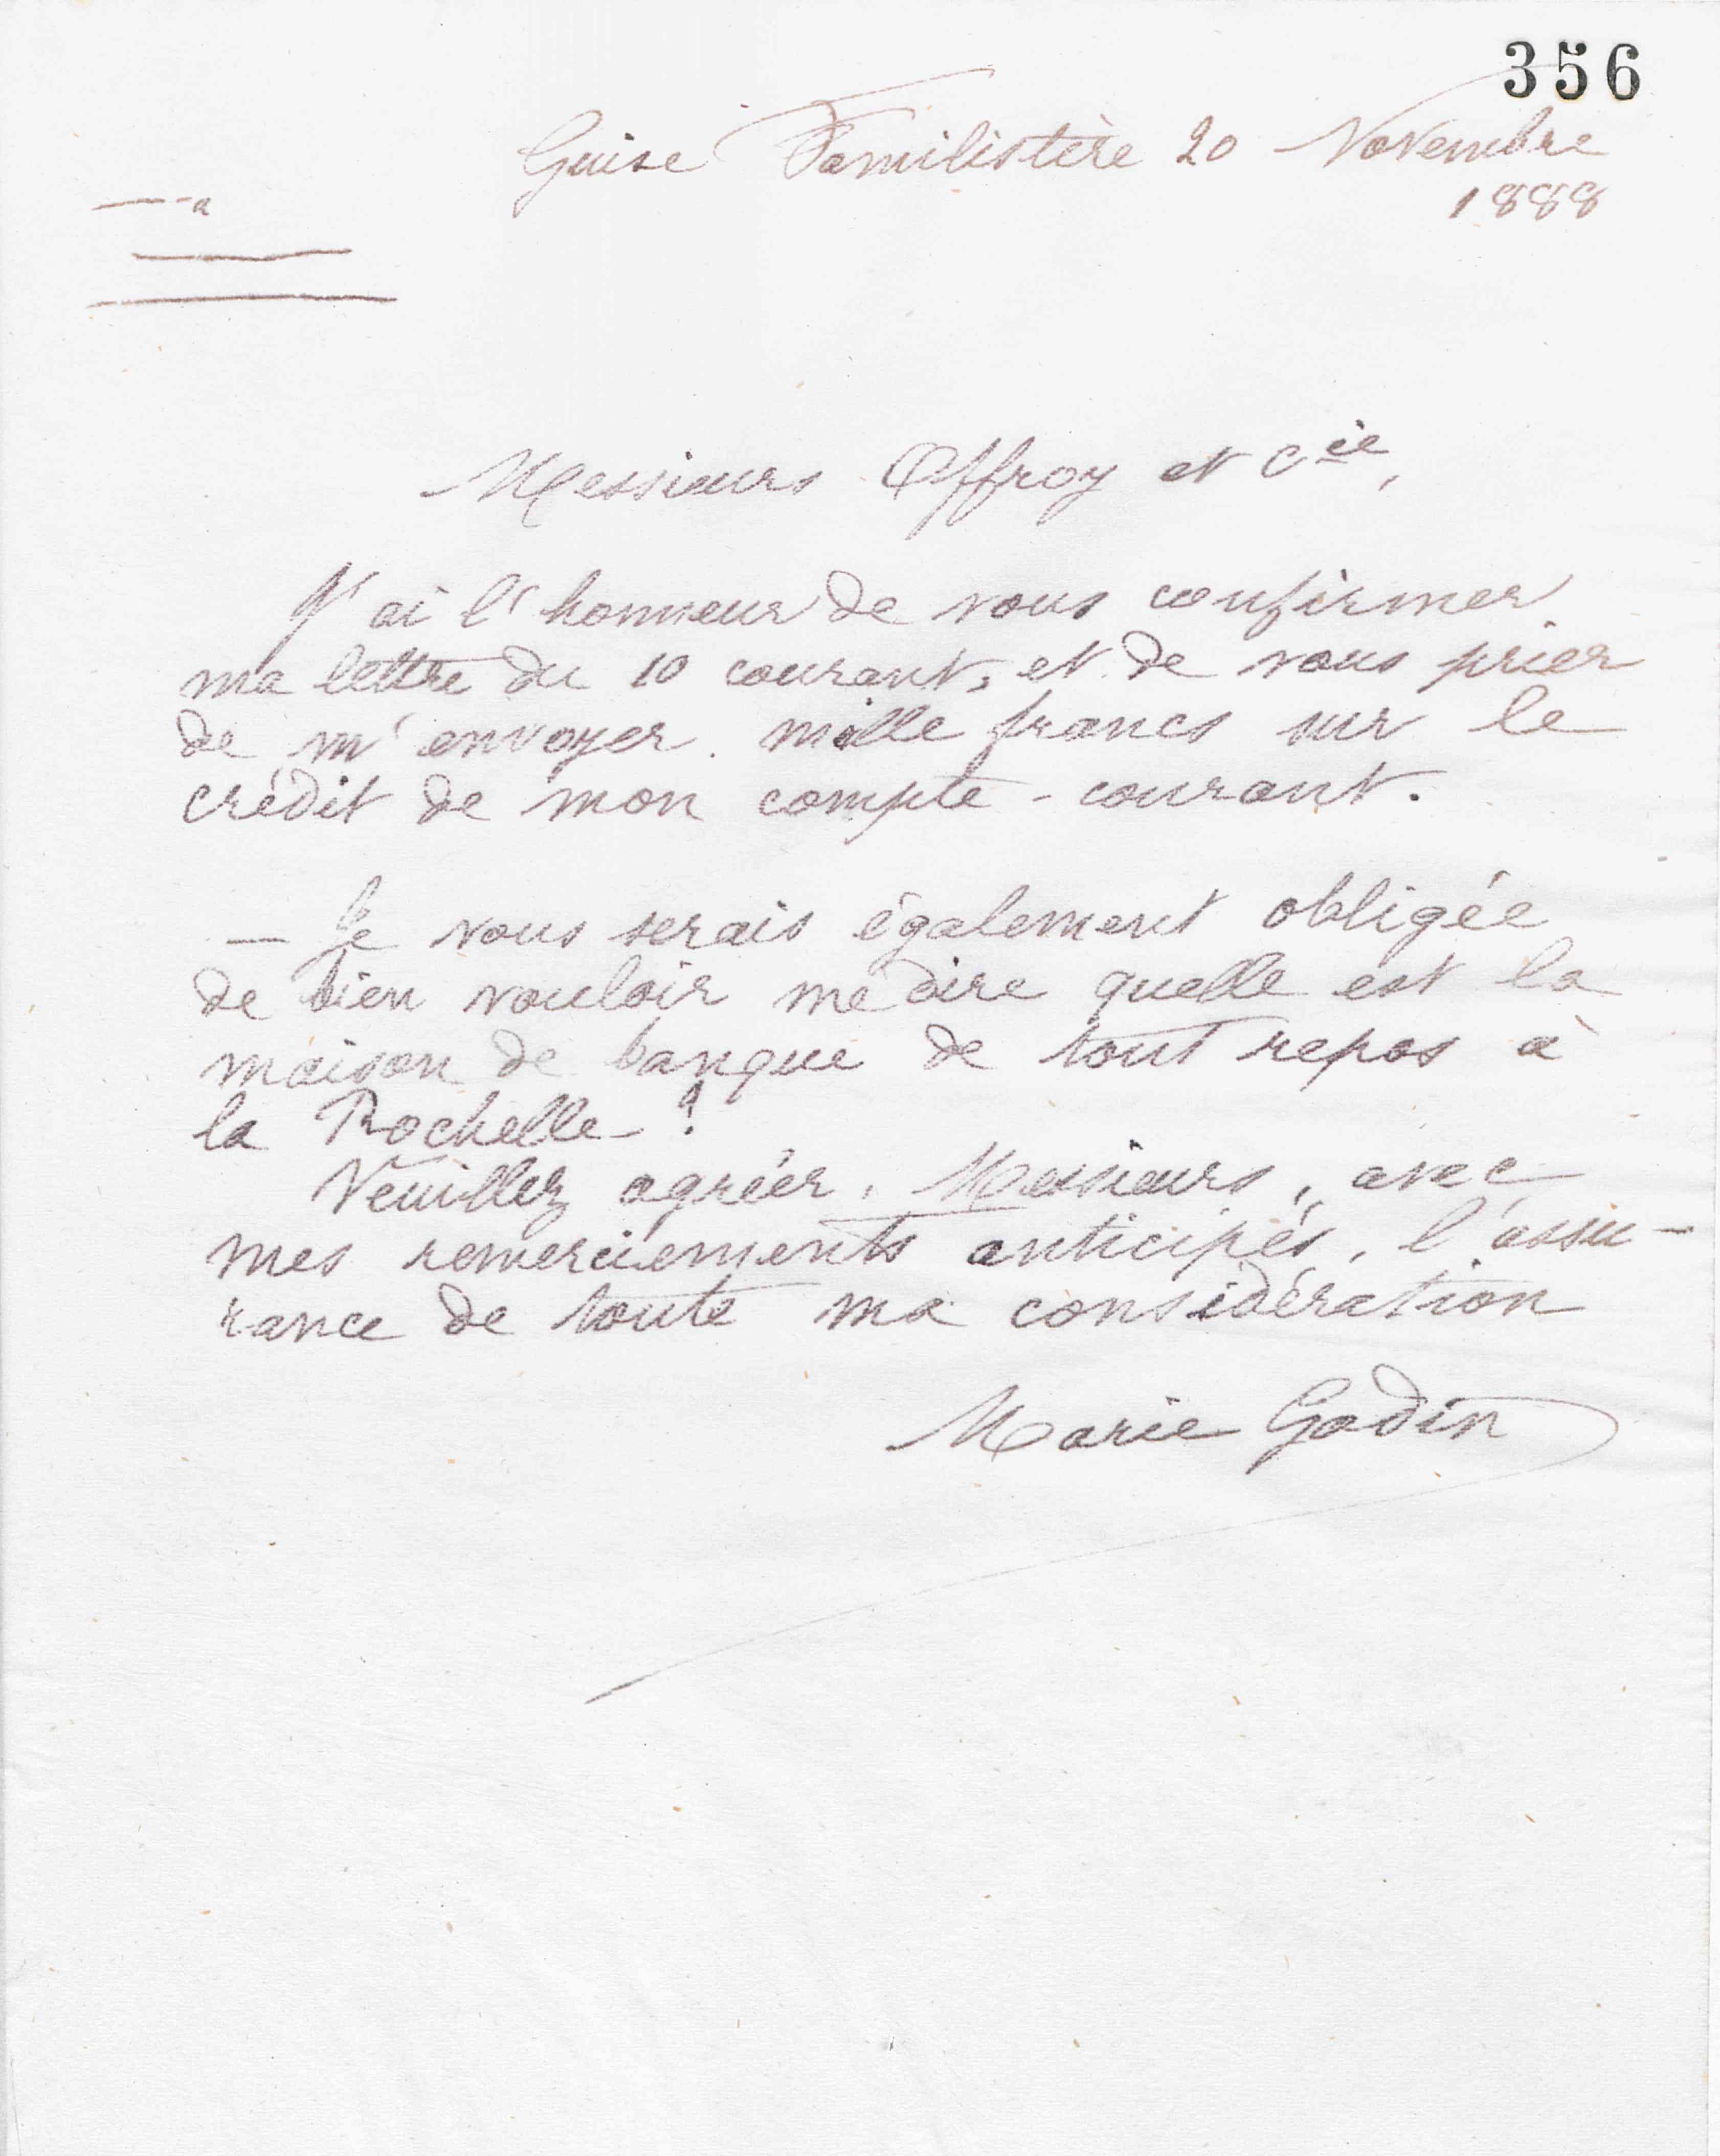 356
Guise Familistère 20 Novembre
1888
Messieurs Offroy et Cie,
J'ai l'honneur de vous confirmer
ma lettre du 10 courant, et de vous prier
de m'envoyer mille francs sur le
crédit de mon compte-courant.
— Je vous serais également obligée
de bien vouloir me dire quelle est la
maison de banque de tout repos à
la Rochelle?
Veuillez agréer, Messieurs, avec
mes remerciements anticipés, l'assu-
rance de toute ma considération
Marie Godin